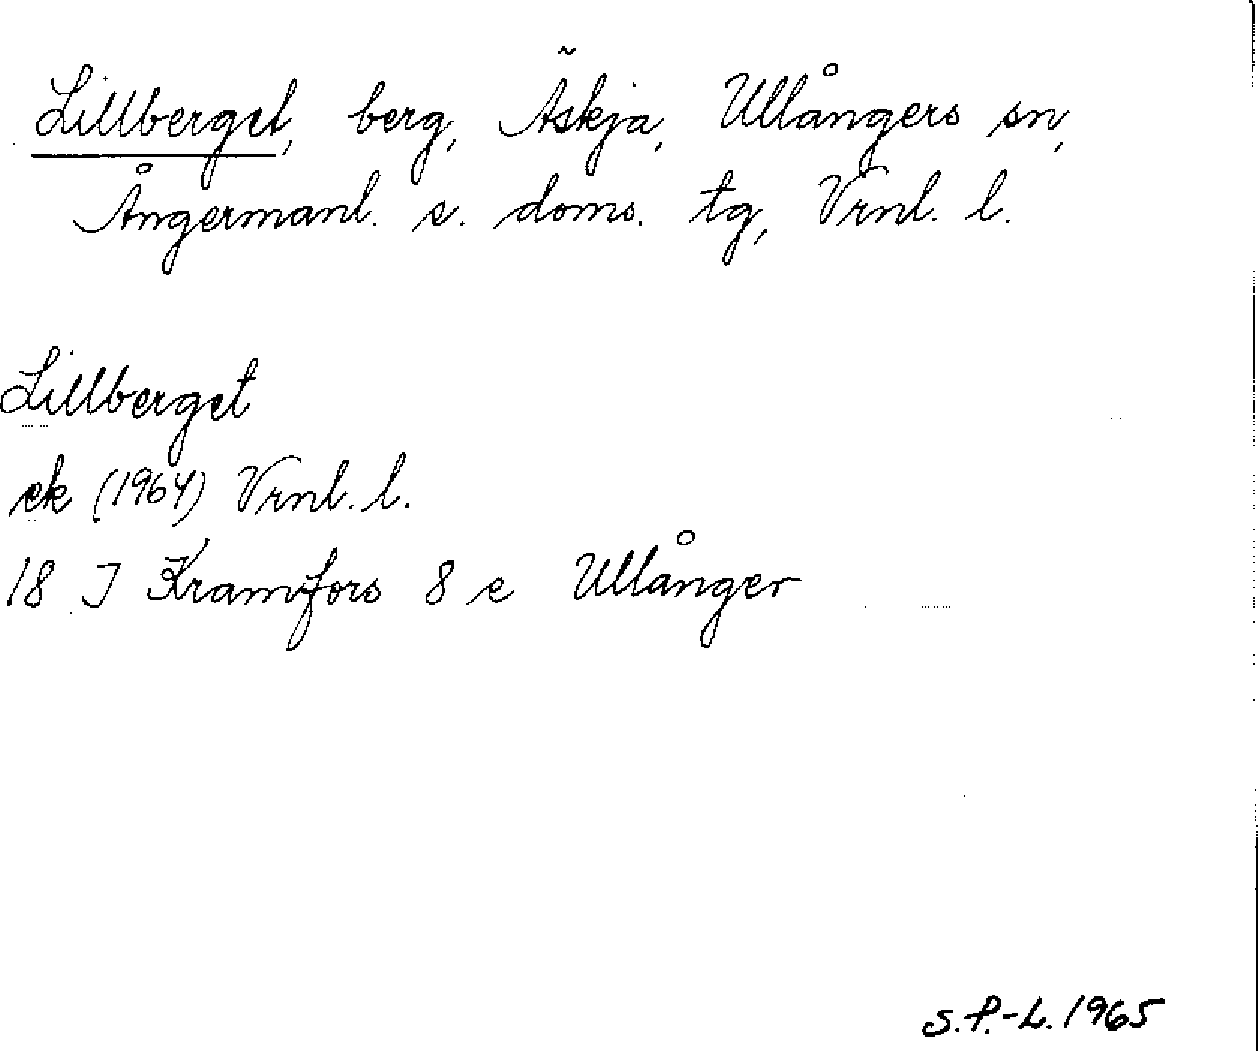 Lillberget, berg, Äskja, Ullångers sn,
Ångermanl. s. doms. tg, Vrnl. l.
Lillberget
ek (1964) Vrnl. l.
18 J Kramfors 8 e Ullånger
S.P.-L. 1965